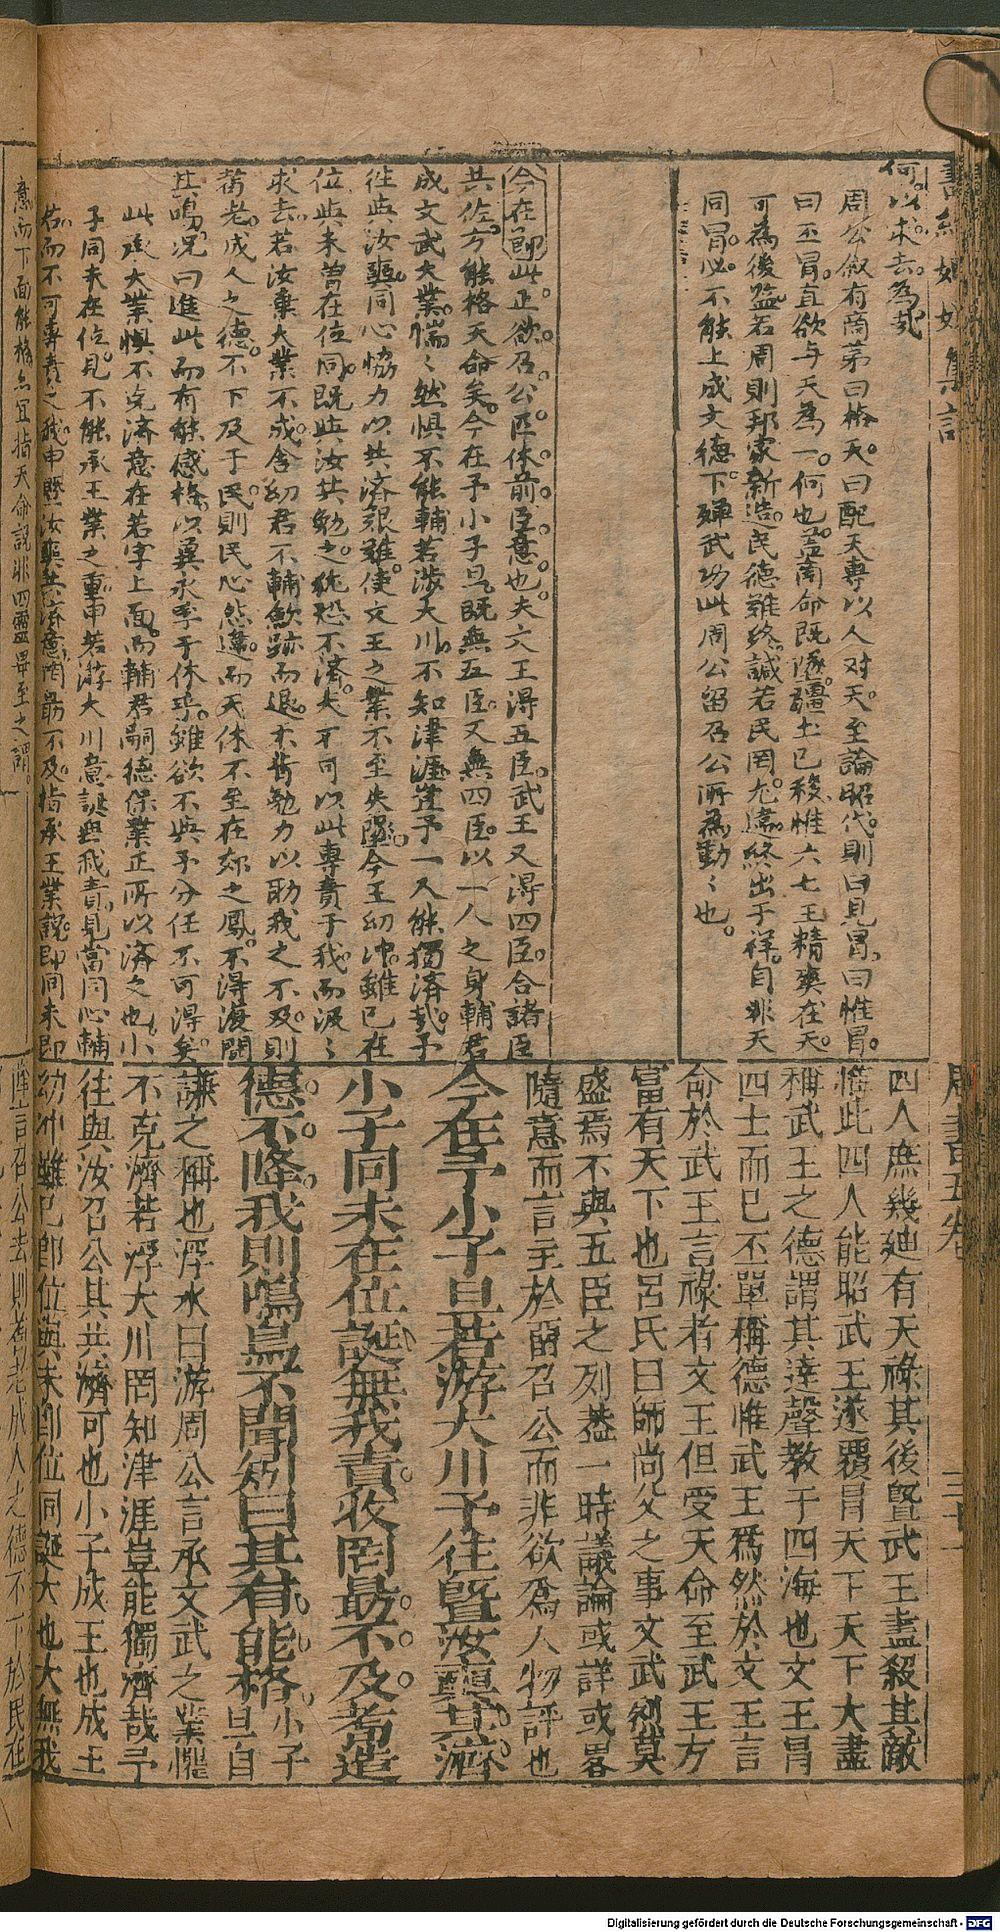 何以求去為哉
周公叙有商第曰格天曰配天專以人对天至論昭代則曰見冒曰惟冒
曰丕冒直欲与天為一何也盖商命既墜疆土已移惟六七王精爽在天
可為後監若周則邦家新造民德難終諴若民罔尤違終出于祥自非天
同冒必不能上成文德下殫武功此周公留召公所為動〻也
今在節此正欲召公匹休前臣意也夫文王得五臣武王又得四臣合諸臣
共佐方能格天命矣今在予小子旦既無五臣又無四臣以一人之身輔君
成文武大業惴〻然惧不能輔若渉大川不知津涯豈予一人能獨済哉予
往与汝奭同心協力以共済艱难使文王之業不至失墜今王幼冲雖已在
位與未曽在位同既與汝共勉之犹恐不済大不可以此專責于我而汲〻
求去若汝棄大業不成舍幼君不輔歛跡而退不肯勉力以助我之不及則
耇老成人之德不下及于民則民心愁違而天休不至在郊之鳳不得復聞
其鳴况曰進此而有能感格以冀永孚于休乎雖欲不與予分任不可得矣
此承大業惧不克済意在若字上面而輔君嗣德保業正所以済之也小
子同未在位見不能承王業之重申若游大川意誕無我責見當同心輔
君而不可專責之我申暨汝奭共済意罔勗不及指承王業說即同未即
四人庶幾廸有天祿其後曁武王盡殺其敵
惟此四人能昭武王遂覆冒天下天下大盡
稱武王之德謂其達聲教于四海也文王冒
四士而已丕單稱德惟武王爲然於文王言
命於武王言祿者文王但受天命至武王方
富有天下也呂氏曰師尚父之事文武烈莫
盛焉不與五臣之列葢一時議論或詳或畧
隨意而言主於留召公而非欲爲人物評也
今在予小子旦若游大川予往曁汝奭其濟
小子同未在位誕無我責收罔勗不及耇造
德不降我則鳴鳥不聞矧曰其有能格小子旦自
謙之稱也浮水曰游周公言承文武之業懼
不克濟若浮大川罔知津涯豈能獨濟哉予
往與汝召公其共濟可也小子成王也成王
幼冲雖已卽位與未卽位同誕大也大無我
意而下面能格亦宜指天命說非四靈畢至之謂
Digitalisierung gefördert durch die Deutsche Forschungsgemeinschaft - DFG